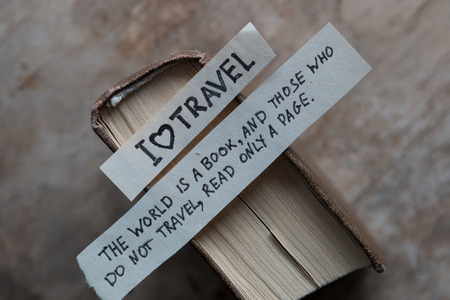 I♡TRAVEL
THE WORLD IS A BOOK, AND THOSE WHO
DO NOT TRAVEL, READ ONLY A PAGE.